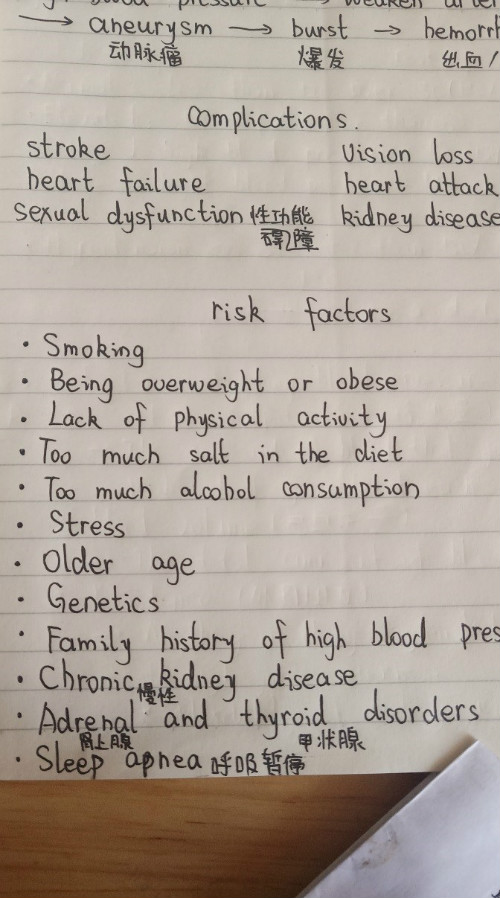 blood pressure → weaken
→ aneurysm → burst → hemorrh
动脉瘤 爆发 出血！
Complications.
stroke vision loss
heart failure heart attack
sexual dysfunction 性功能 kidney disease
碍障
risk factors
· Smoking
· Being overweight or obese
· Lack of physical activity
· Too much salt in the diet
· Too much alcohol consumption
· Stress
· Older age
· Genetics
· Family history of high blood pres
· Chronic kidney disease
慢性
· Adrenal and thyroid disorders
肾上腺 甲状腺
· Sleep apnea 呼吸暂停